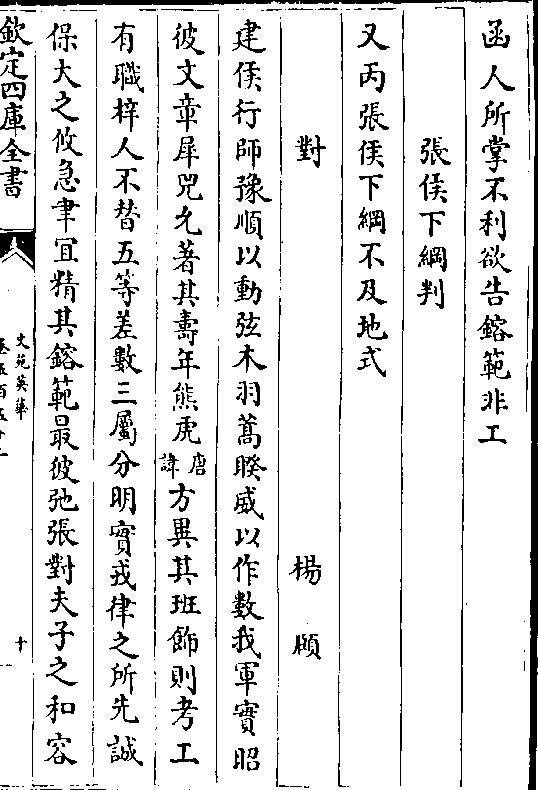 函人所掌不利欲告鎔範非工
張侯下綱判
又丙張侯下綱不及地式
對 楊頋
建侯行師豫順以動弦木羽蒿睽威以作數我軍實昭
彼文章犀兕允著其壽年熊虎唐諱方異其班飾則考工
有職梓人不替五等差數三屬分明實戎律之所先誠
保大之攸急聿冝精其鎔範最彼弛張對夫子之和容
欽定四庫全書
文苑英華
十